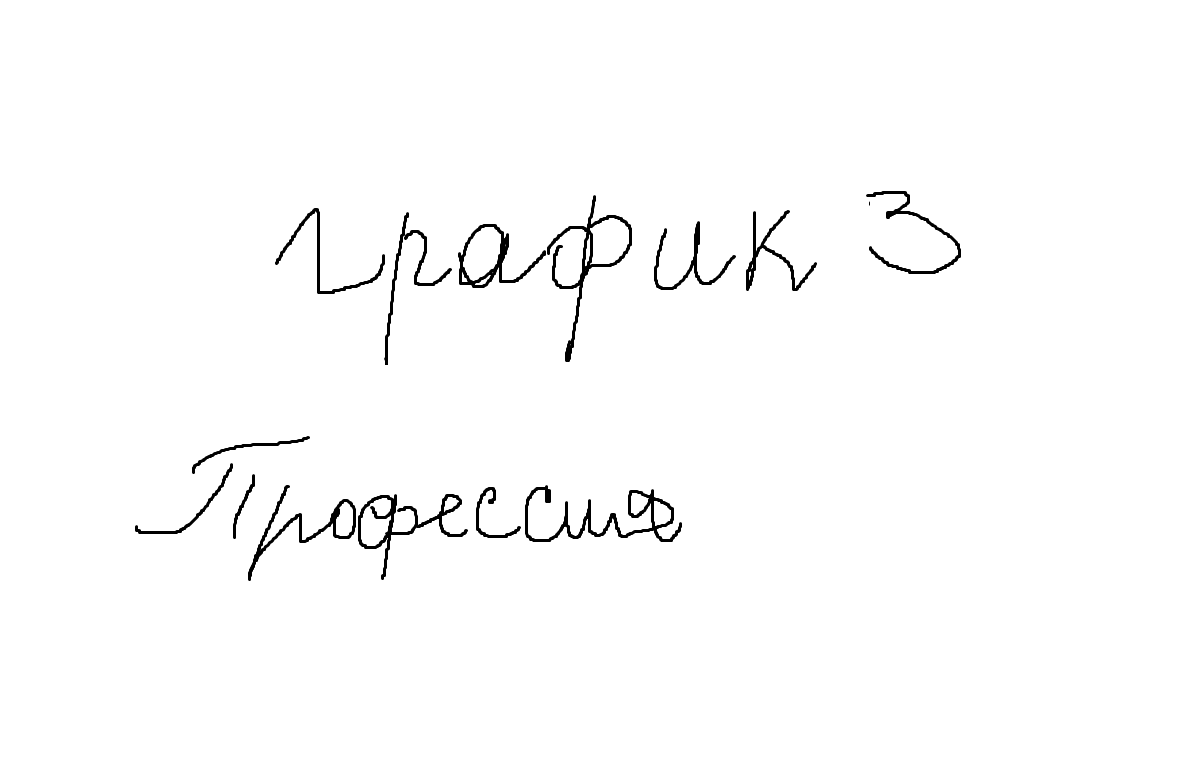 график 3
Профессия